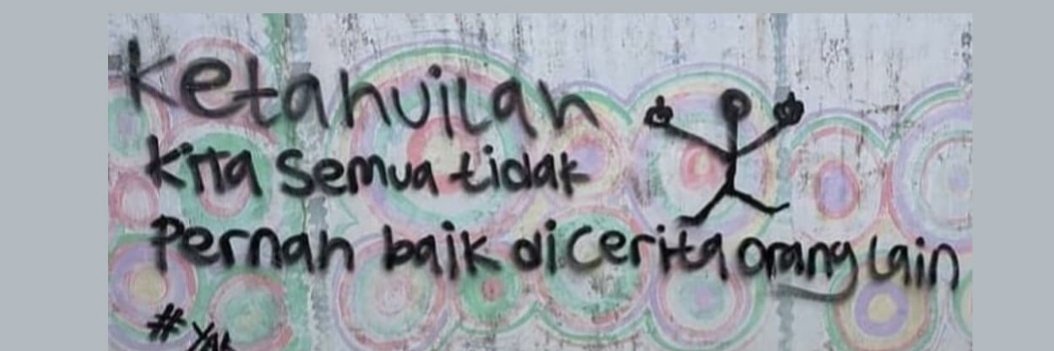 Ketahuilah
kita semua tidak
Pernah baik dicerita orang lain